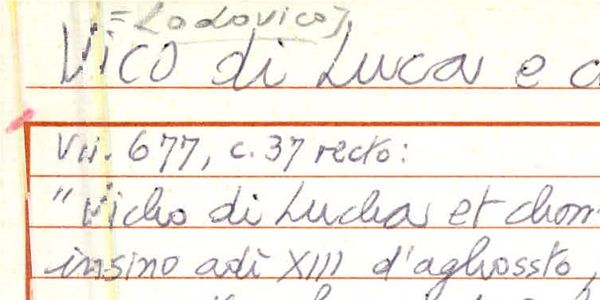 = Lodovico]
Vico di Luca e c
Vii. 677, c. 37 recto:
"Vicho di Lucha et chom
insino adì XIII d'aghossto,